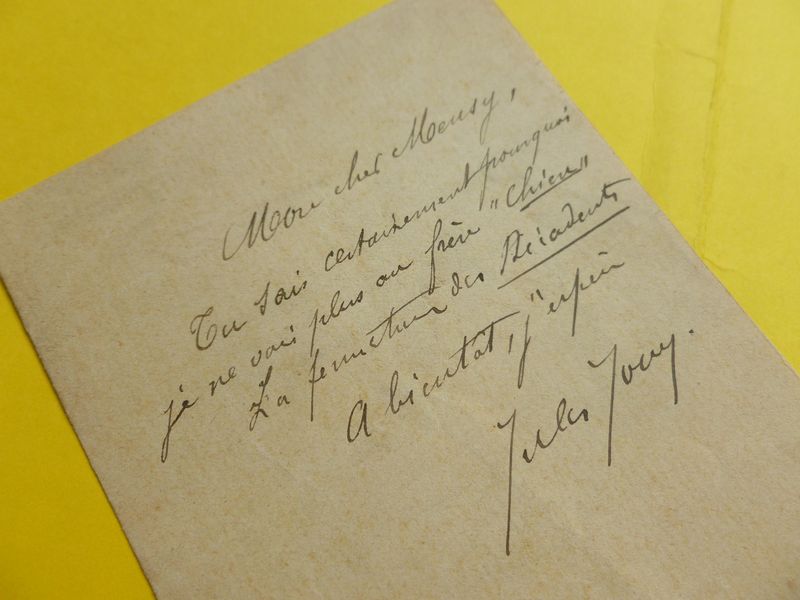 Mon cher Meusy,
Tu sais certainement pourquoi
je ne vais plus au frère "Chien"
La fermeture des Décadents
A bientôt, j'espère
Jules Jouy.